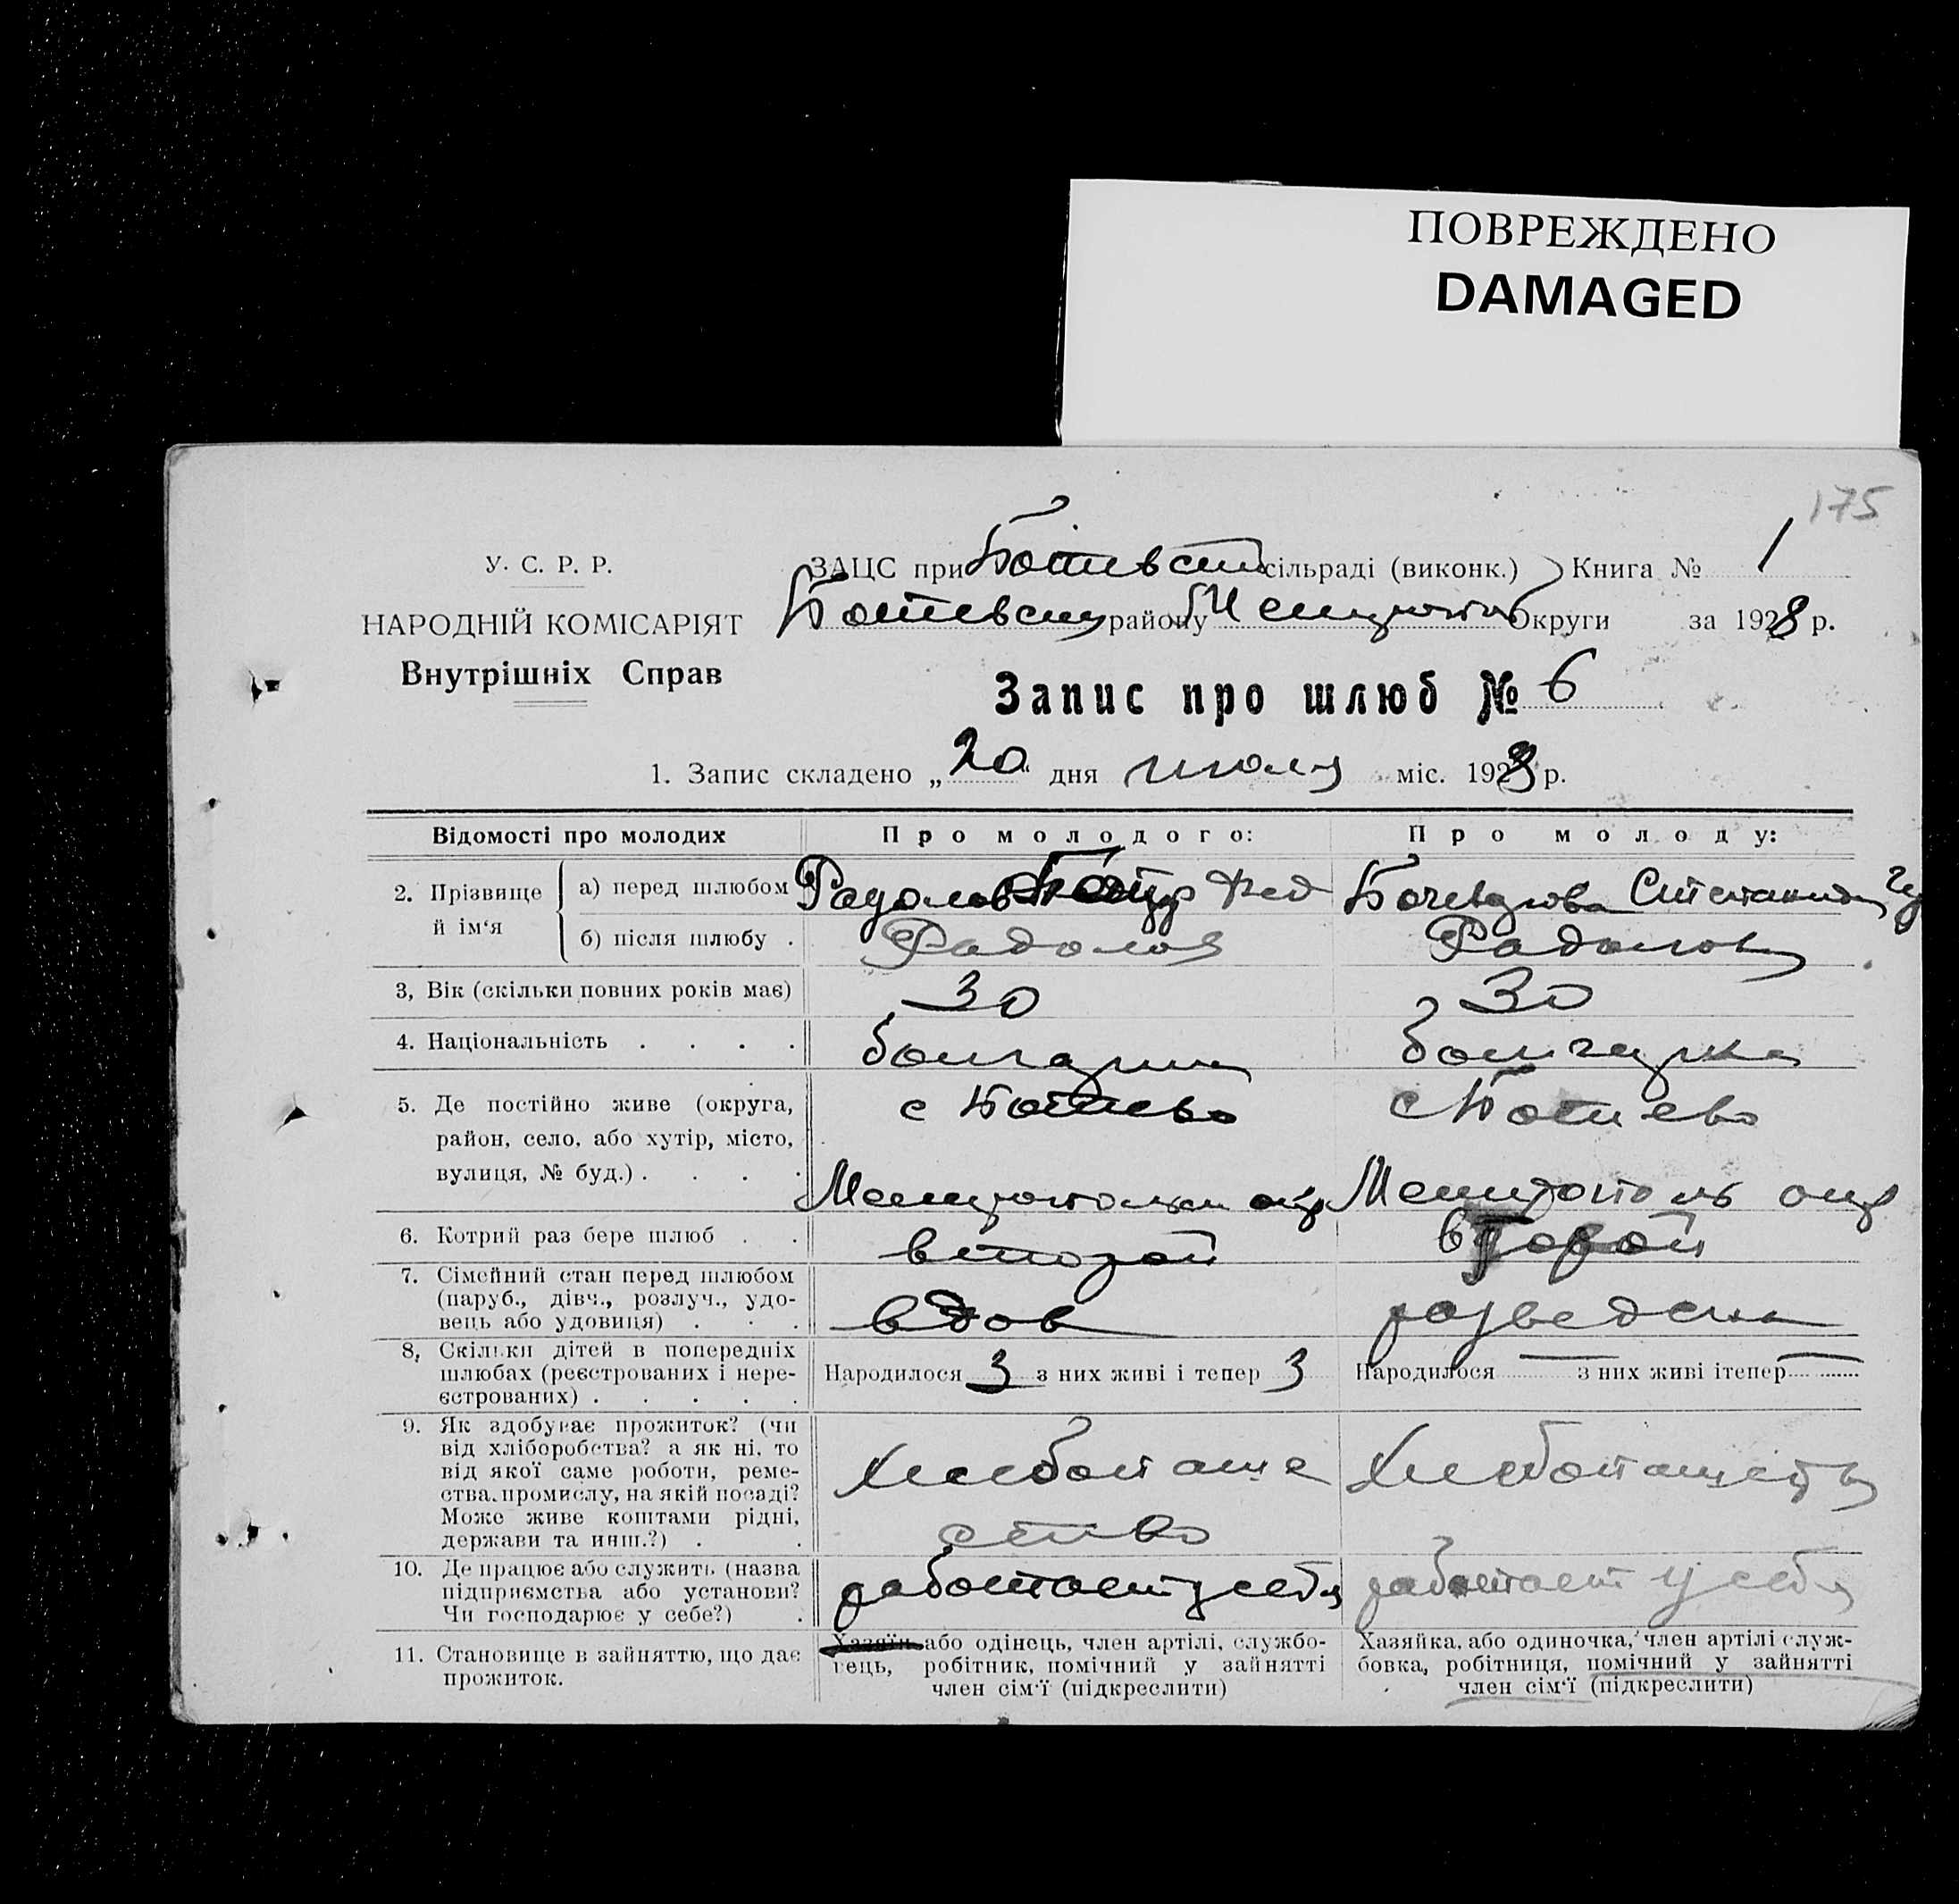 ПОВРЕЖДЕНО
DAMAGED
175
У. С. Р. Р.
НАРОДНІЙ КОМІСАРІЯТ
Внутрішніх Справ
ЗАЦС при Ботивськ сільраді (виконк.) Книга № 1
району Округи за 1928 р.
Запис про шлюб № 6
1. Запис складено „20“ дня июля міс. 1928 р.
Відомості про молодих Про молодого: Про молоду:
2. Прізвище й ім‘я
а) перед шлюбом Радолов Фед
б) після шлюбу . Радолов Радолов
3, Вік (скільки повних років має) 30 30
4. Національність . . . . болгарин болгарка
5. Де постійно живе (округа, район, село, або хутір, місто, вулиця, № буд.) . . . . с Ботиево с Ботиево
Мелитополь окр
6. Котрий раз бере шлюб . . второй второй
7. Сімейний стан перед шлюбом (паруб., дівч., розлуч., удовець або удовиця) . . . вдов разведена
8, Скільки дітей в попередніх шлюбах (реєстрованих і нереєстрованих) . . . . . Народилося 3 з них живі і тепер 3 Народилося — з них живі ітепер —
9. Як здобуває прожиток? (чи від хліборобства? а як ні, то від якої саме роботи, ремества, промислу, на якій посаді? Може живе коштами рідні, держави та инш.?) . . Хлебопаше
ство Хлебопашеств
10. Де працює або служить (назва підприємства або установи? Чи господарює у себе?) . работает у себя работает у себя
11. Становище в зайняттю, що дає прожиток. Хазяїн або одінець, член артілі, службовець, робітник, помічний у зайнятті член сім‘ї (підкреслити) Хазяйка, або одиночка, член артілі службовка, робітниця, помічний у зайнятті член сім‘ї (підкреслити)